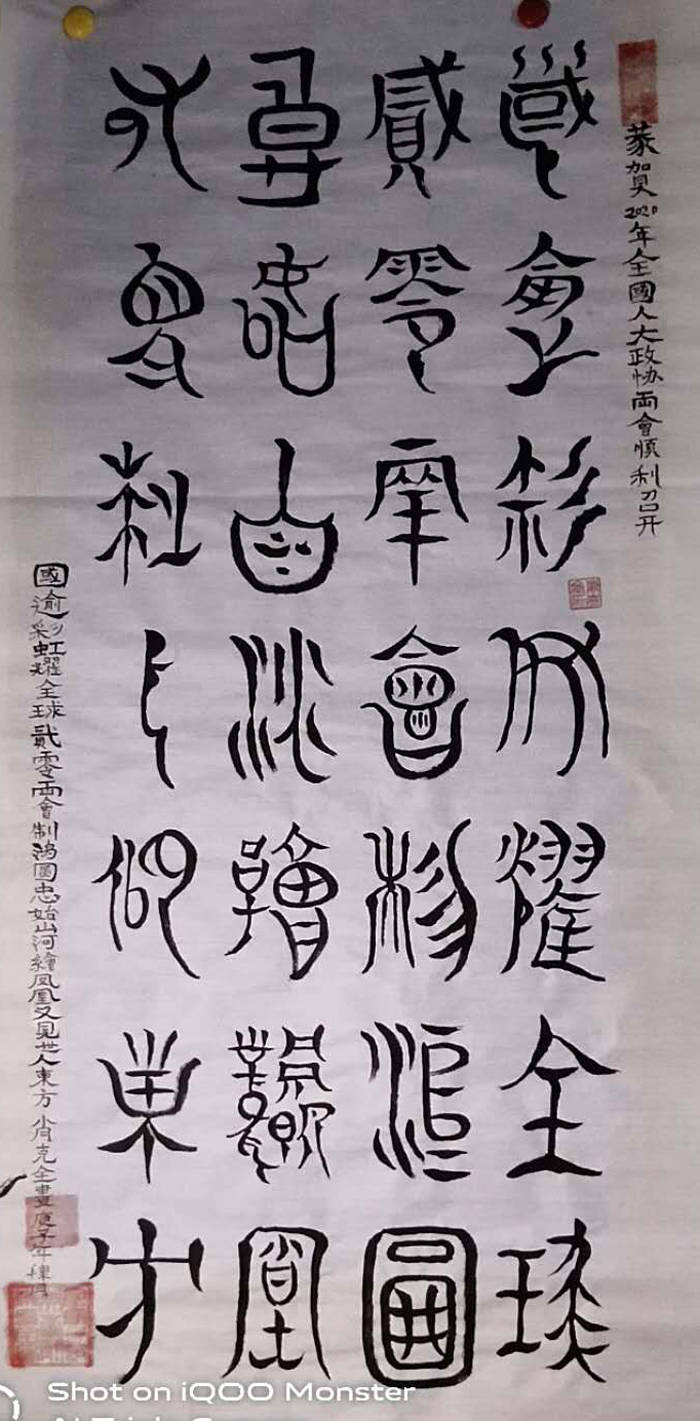 賀2020年全國人大政协両會順利召开
彩耀全球
貳零両會制鴻圖
山河繪鳳凰
又見人仰東方
國逾彩虹耀全球貳零両會制鴻圖忠始山河繪凤凰又見世人東方 肖克全書庚子年肆月
Shot on iQOO Monster